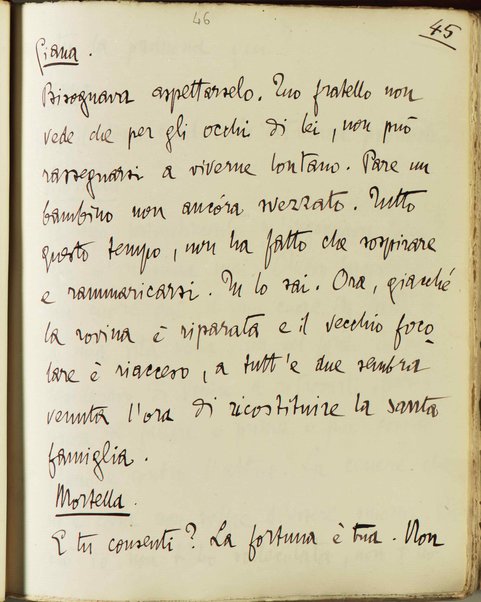 46
45
Giana.
Bisognava aspettarselo. Tuo fratello non
vede che per gli occhi di lei, non può
rassegnarsi a viverne lontano. Pare un
bambino non ancóra svezzato. Tutto
questo tempo, non ha fatto che sospirare
e rammaricarsi. Tu lo sai. Ora, giacché
la rovina è riparata e il vecchio foco
lare è riacceso, a tutt'e due sembra
venuta l'ora di ricostituire la santa
famiglia.
Mortella.
E tu consenti? La fortuna è tua. Non